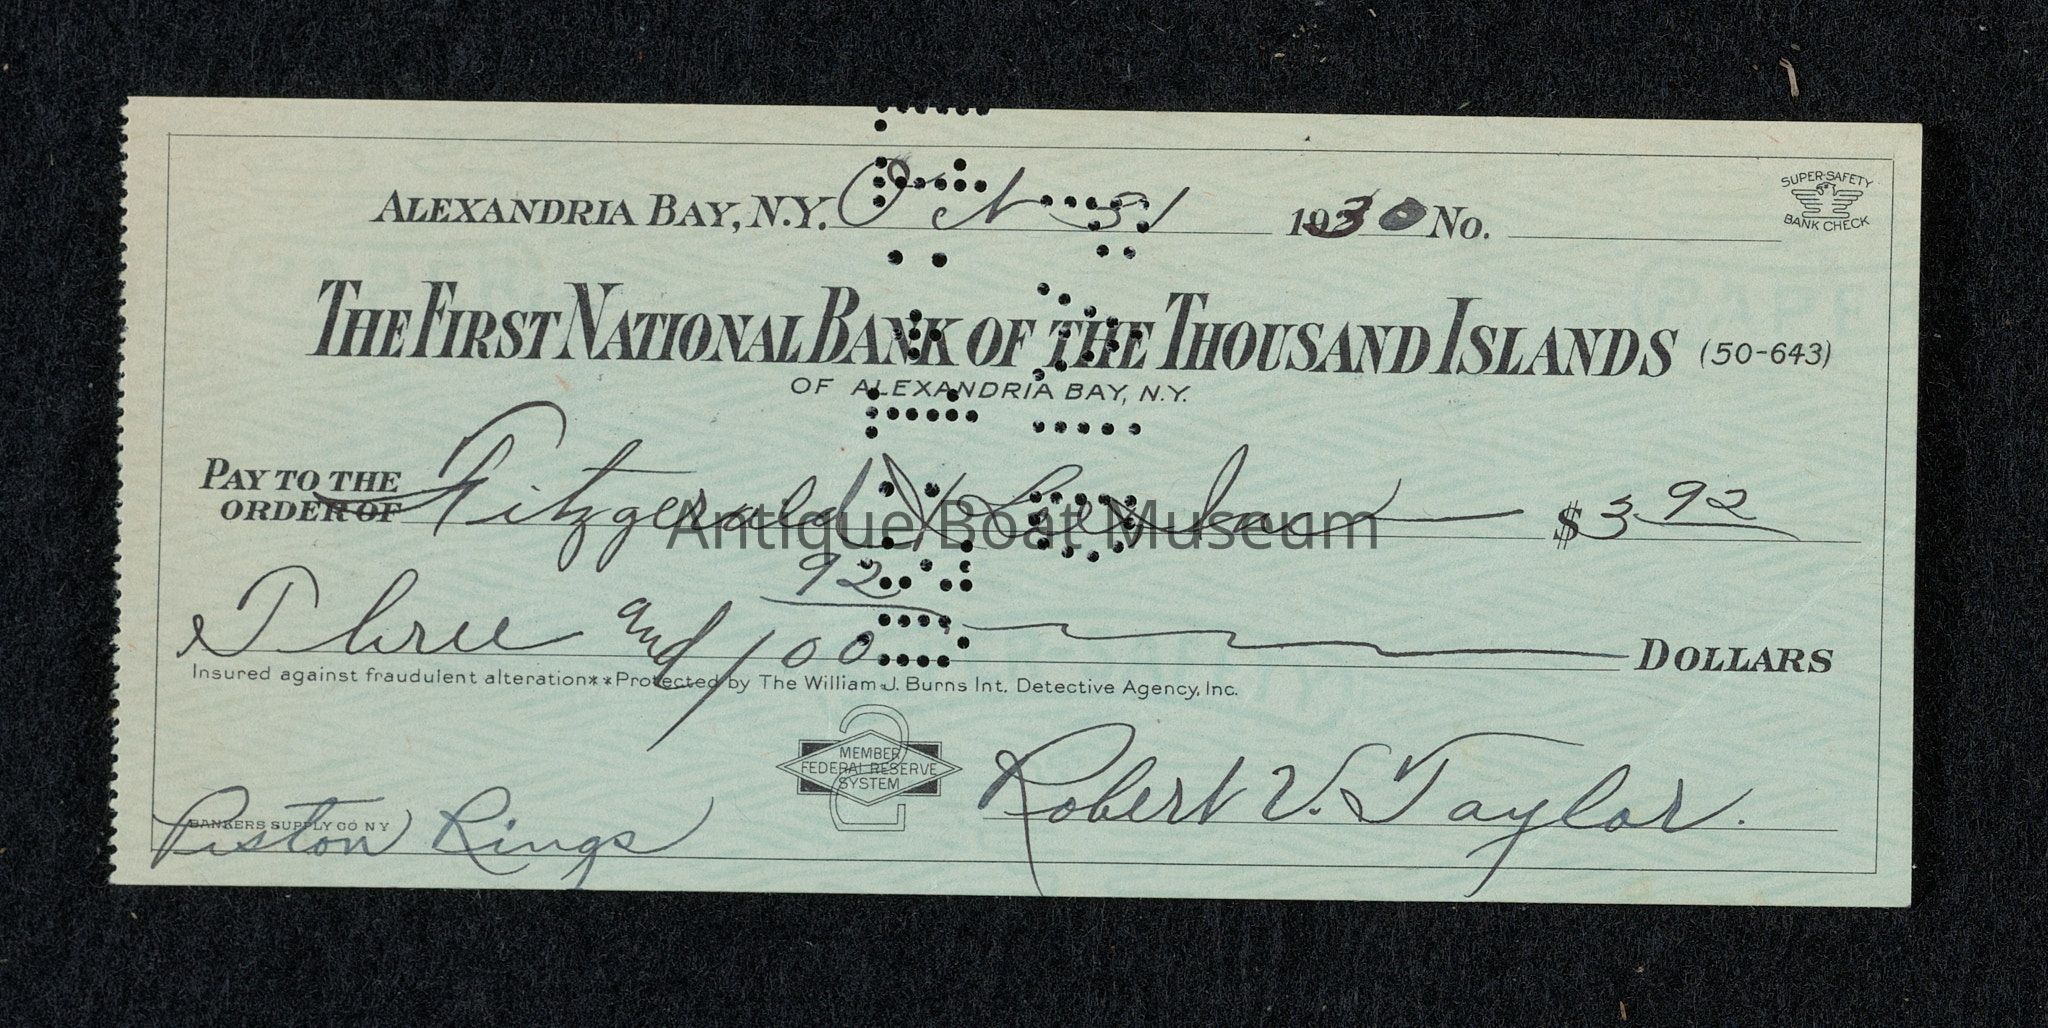 ALEXANDRIA BAY, N.Y. Oct 31 1930 No.
SUPER-SAFETY
BANK CHECK
THE FIRST NATIONAL BANK OF THE THOUSAND ISLANDS (50-643)
OF ALEXANDRIA BAY, N.Y.
PAY TO THE
ORDER OF Fitzgerald & $ 3 92
Antique Boat Museum
Three and 92/100 DOLLARS
Insured against fraudulent alteration**Protected by The William J. Burns Int. Detective Agency, Inc.
MEMBER
FEDERAL RESERVE
SYSTEM
Robert V. Taylor.
BANKERS SUPPLY CO N Y
Piston Rings